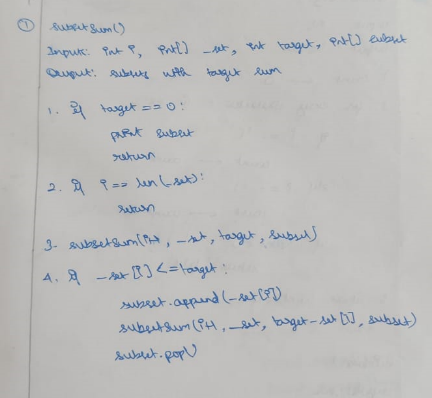 1 SubsetSum()
Input: int i, int[] _set, int target, int[] subset
Output: subsets with target sum
1. if target == 0:
print subset
return
2. if i == len(_set):
return
3. subsetSum(i+1, _set, target, subset)
4. if _set[i] <= target:
subset.append(_set[i])
subsetSum(i+1, _set, target-set[i], subset)
subset.pop()